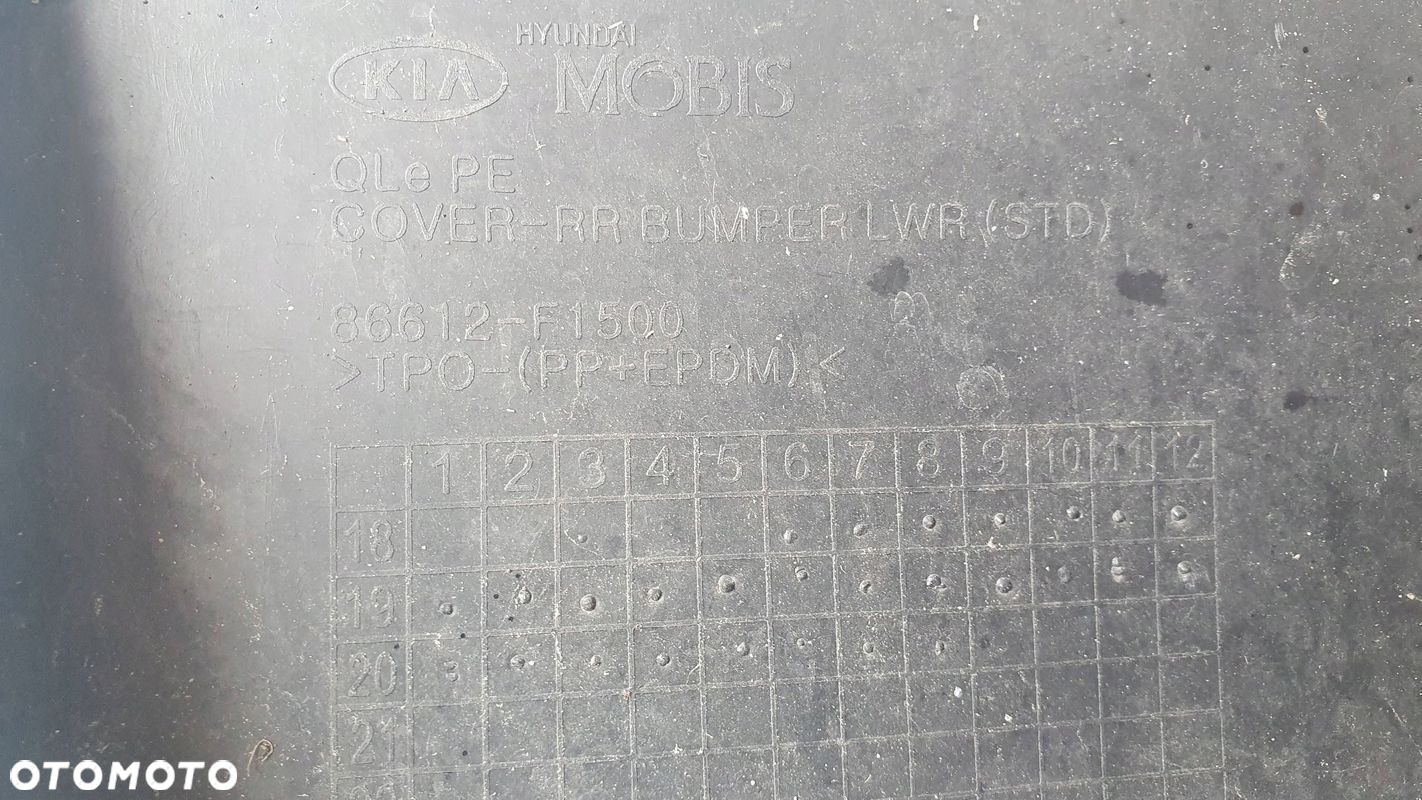 HYUNDAI
KIA MOBIS
QLe PE
COVER-RR BUMPER LWR (STD)
86612-F1500
>TPO-(PP+EPDM)<
1 2 3 4 5 6 7 8 9 10 11 12
18
19
20
21
OTOMOTO